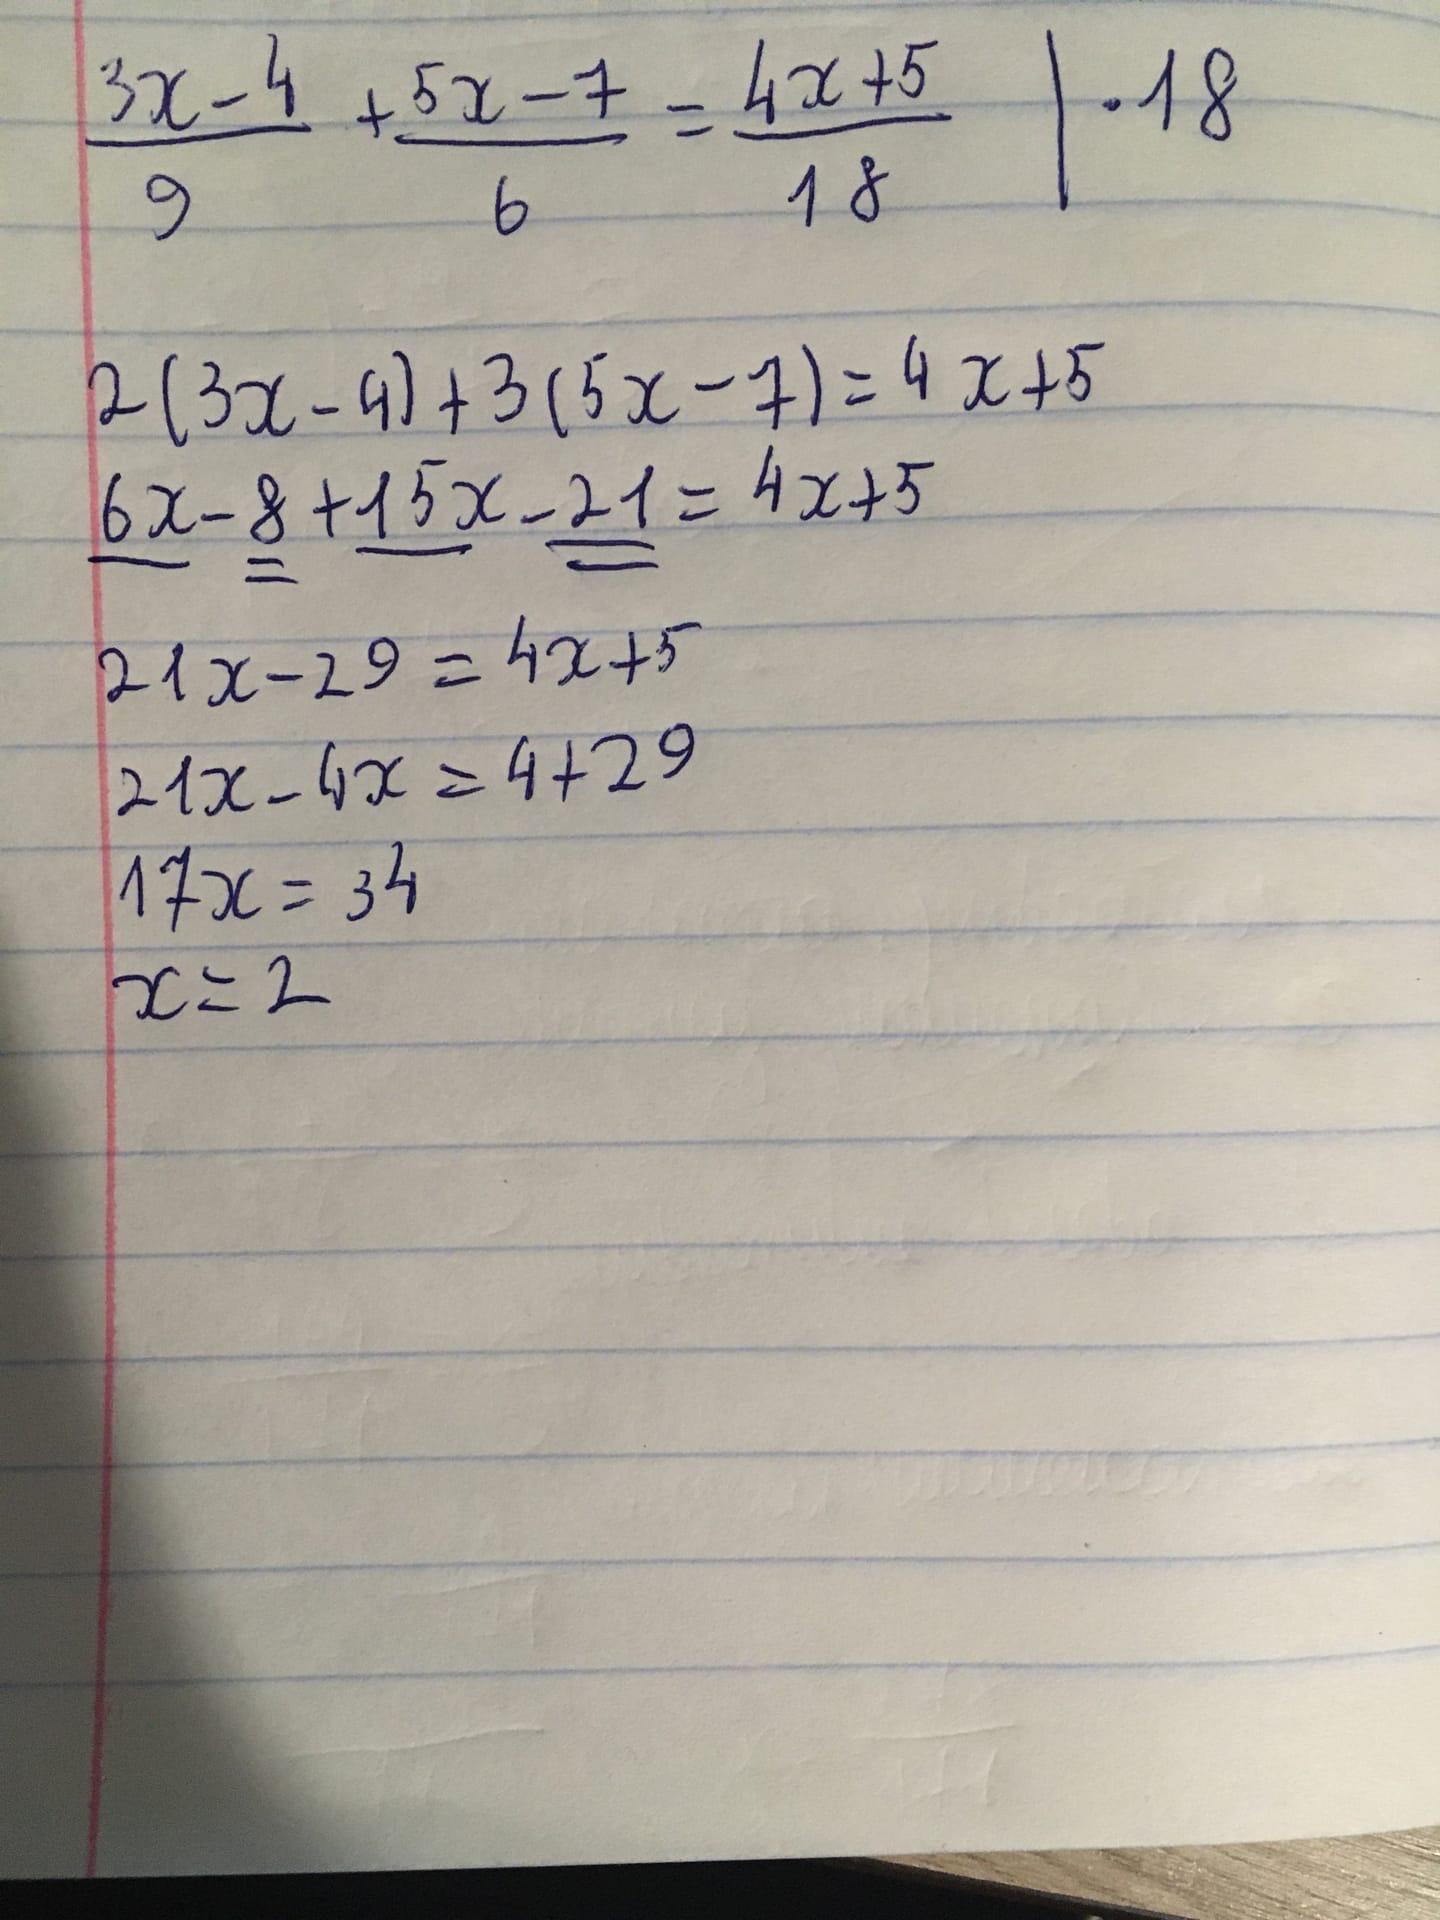 (3x-4)/9 + (5x-7)/6 = (4x+5)/18 | ·18
2(3x-4)+3(5x-7)=4x+5
6x-8+15x-21=4x+5
21x-29=4x+5
21x-4x=4+29
17x=34
x=2